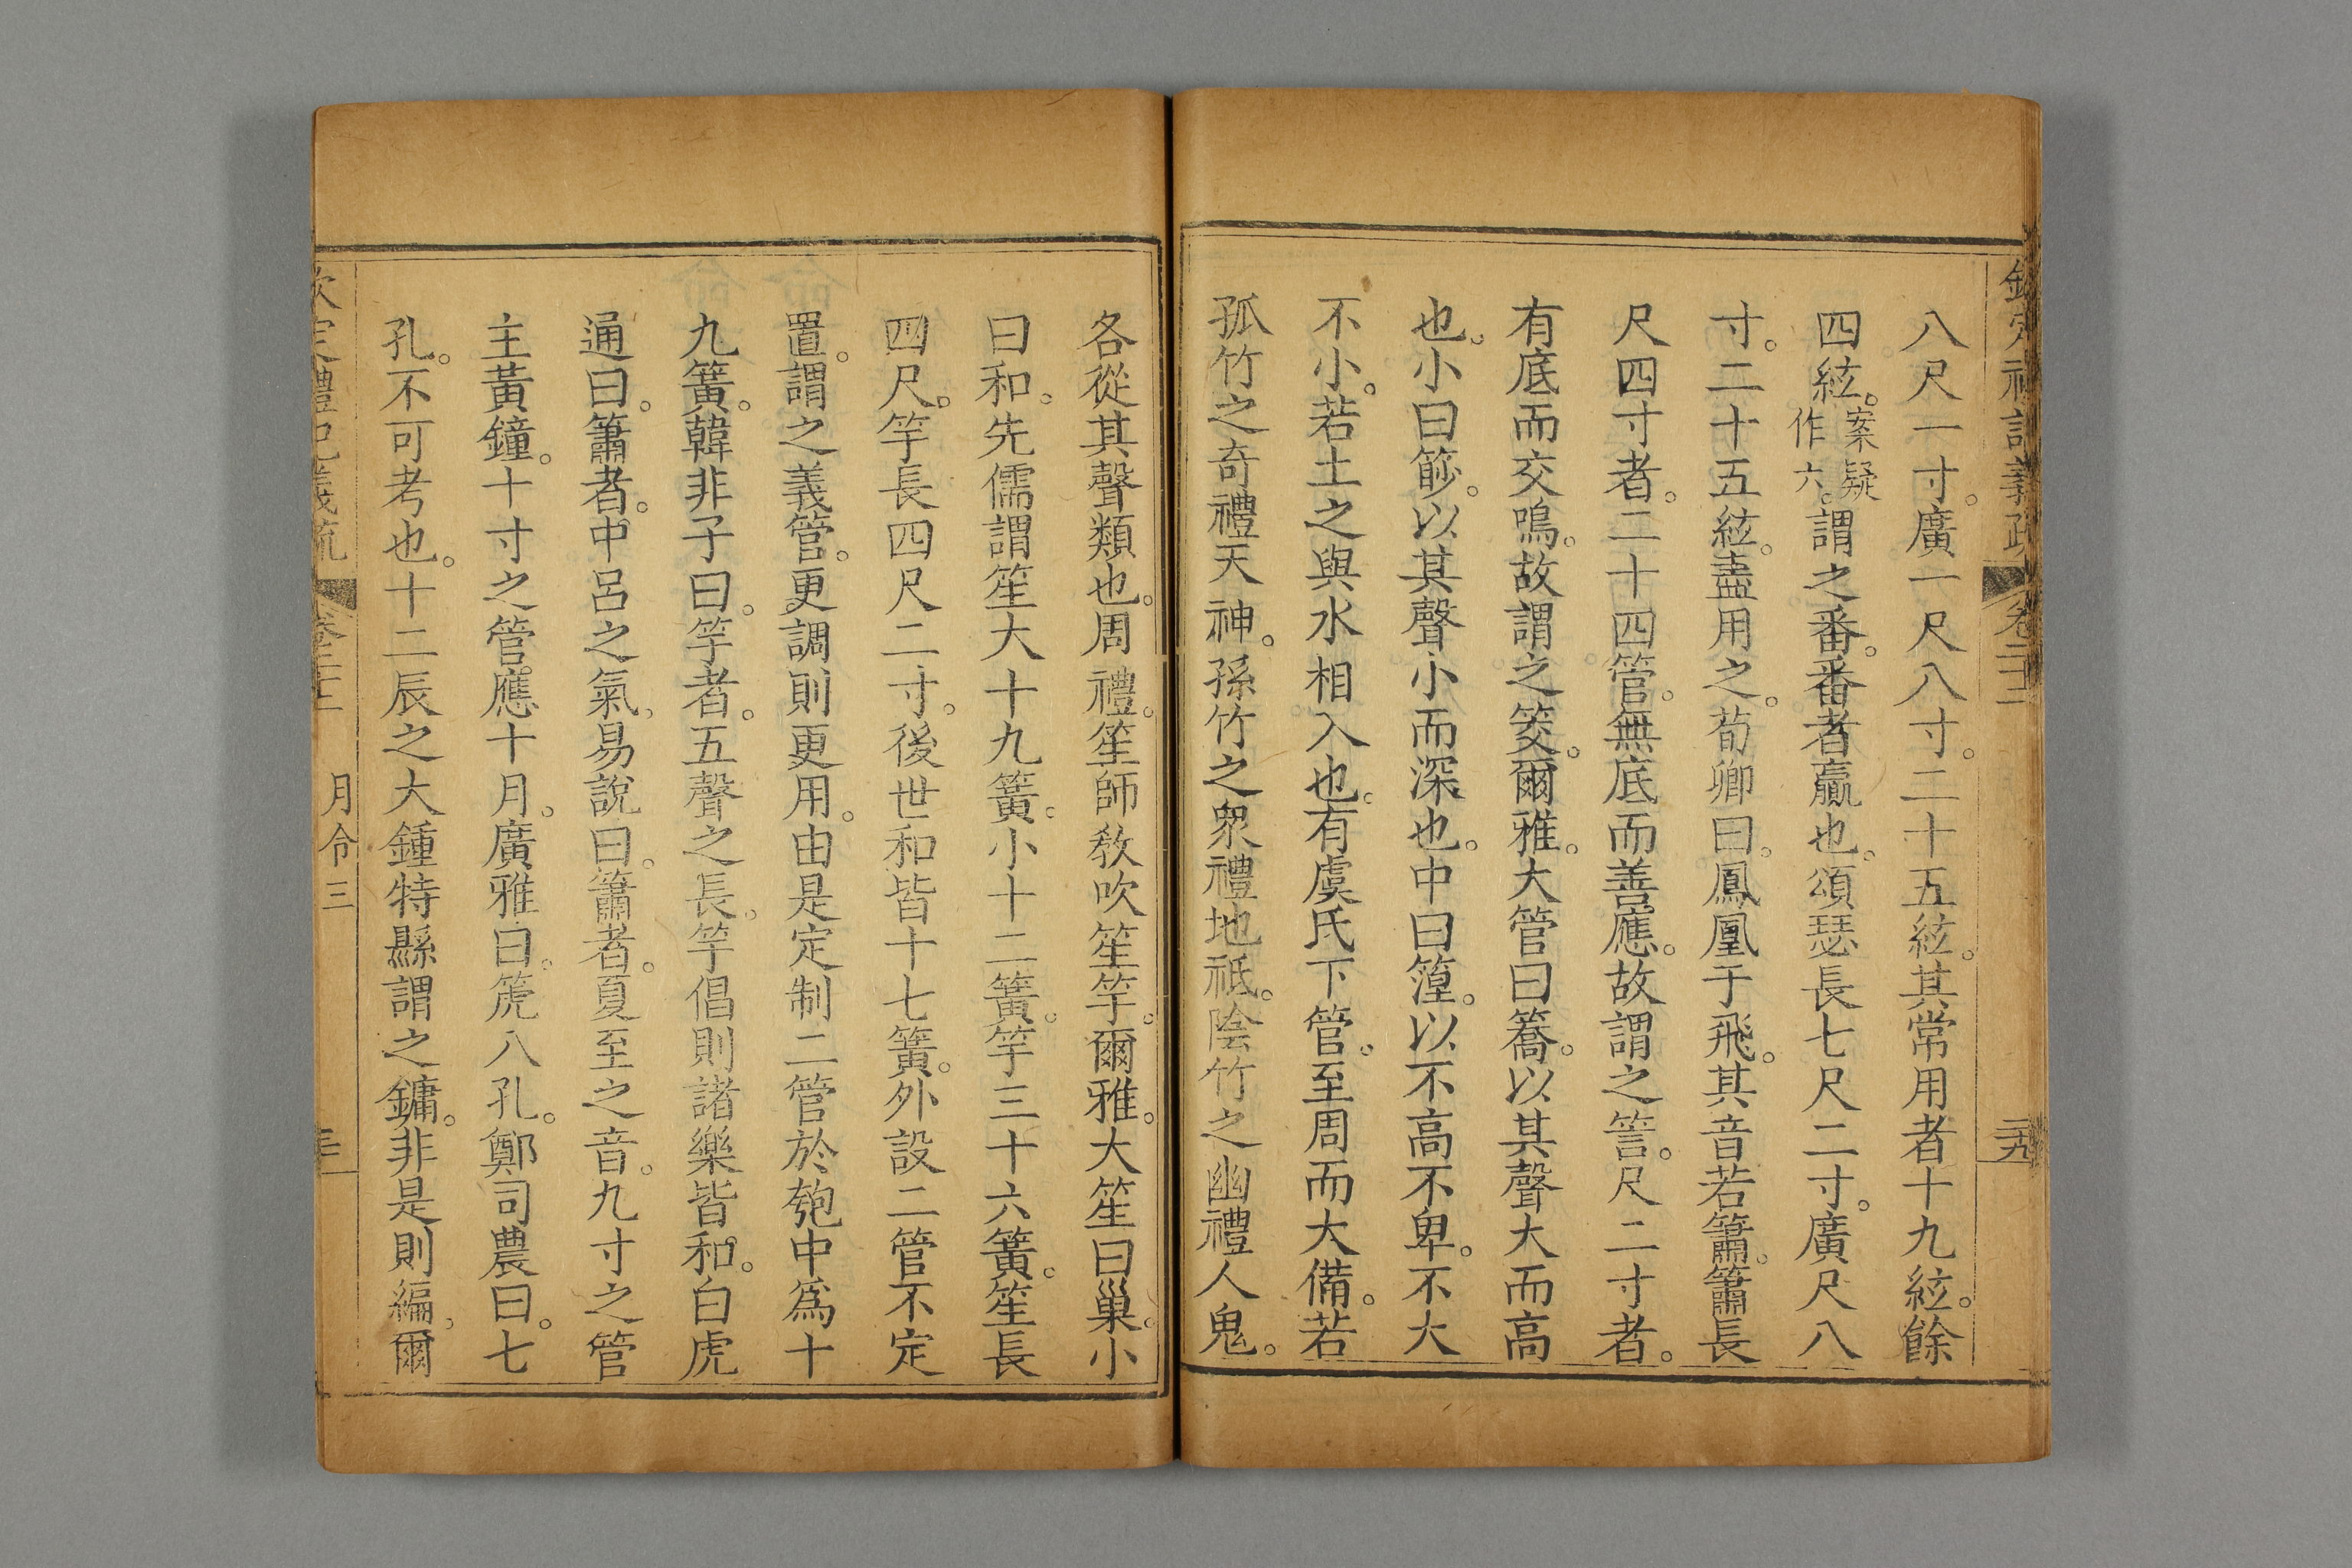 八尺一寸。廣一尺八寸。二十五絃。其常用者十九絃。餘
四絃。案疑作六。謂之番。番者贏也。頌瑟長七尺二寸。廣尺八
寸。二十五絃。盡用之。荀卿曰。鳳凰于飛。其音若簫。簫長
尺四寸者。二十四管。無底而善應。故謂之䇾。尺二寸者。
有底而交鳴。故謂之筊。爾雅。大管曰簥。以其聲大而高
也。小曰篎。以其聲小而深也。中曰篞。以不高不卑。不大
不小。若土之與水相入也。有虞氏下管。至周而大備。若
孤竹之奇禮天神。孫竹之衆禮地祇。陰竹之幽禮人鬼。
各從其聲類也。周禮。笙師敎吹笙竽。爾雅。大笙曰巢。小
曰和。先儒謂笙大十九簧。小十二簧。竽三十六簧。笙長
四尺。竽長四尺二寸。後世和皆十七簧。外設二管不定
置。謂之義管。更調則更用。由是定制二管於匏中爲十
九簧。韓非子曰。竽者。五聲之長。竽倡則諸樂皆和。白虎
通曰。簫者。中呂之氣。易說曰。簫者。夏至之音。九寸之管
主黃鐘。十寸之管應十月。廣雅曰。箎八孔。鄭司農曰。七
孔。不可考也。十二辰之大鍾特縣謂之鏞。非是則編。爾
欽定禮記義疏 卷二十二 月令三